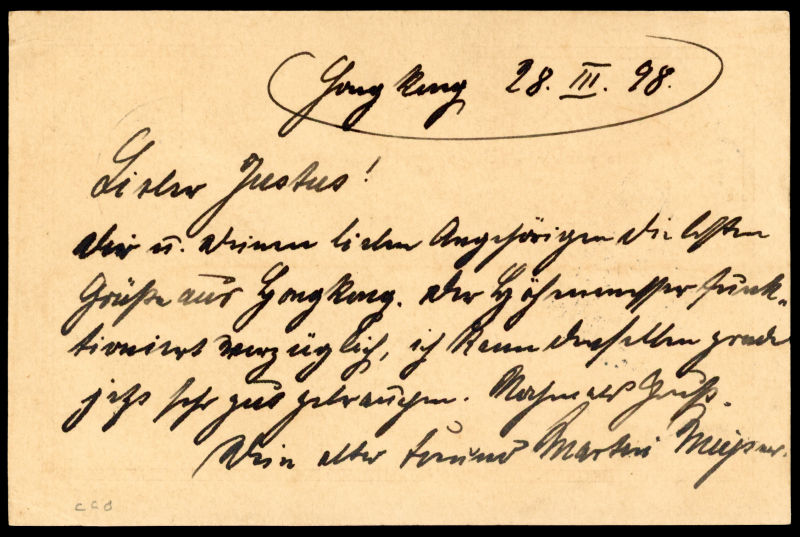 Hong Kong 28. III. 98.
Lieber Justus!
Dir u. Deinen lieben Angehörigen die besten
Grüße aus Hongkong. Der Höhenmesser funk-
tioniert vorzüglich, ich kann denselben grade
jetzt sehr gut gebrauchen. Nochmals Gruß.
Dein alter Freund Martin
ccd